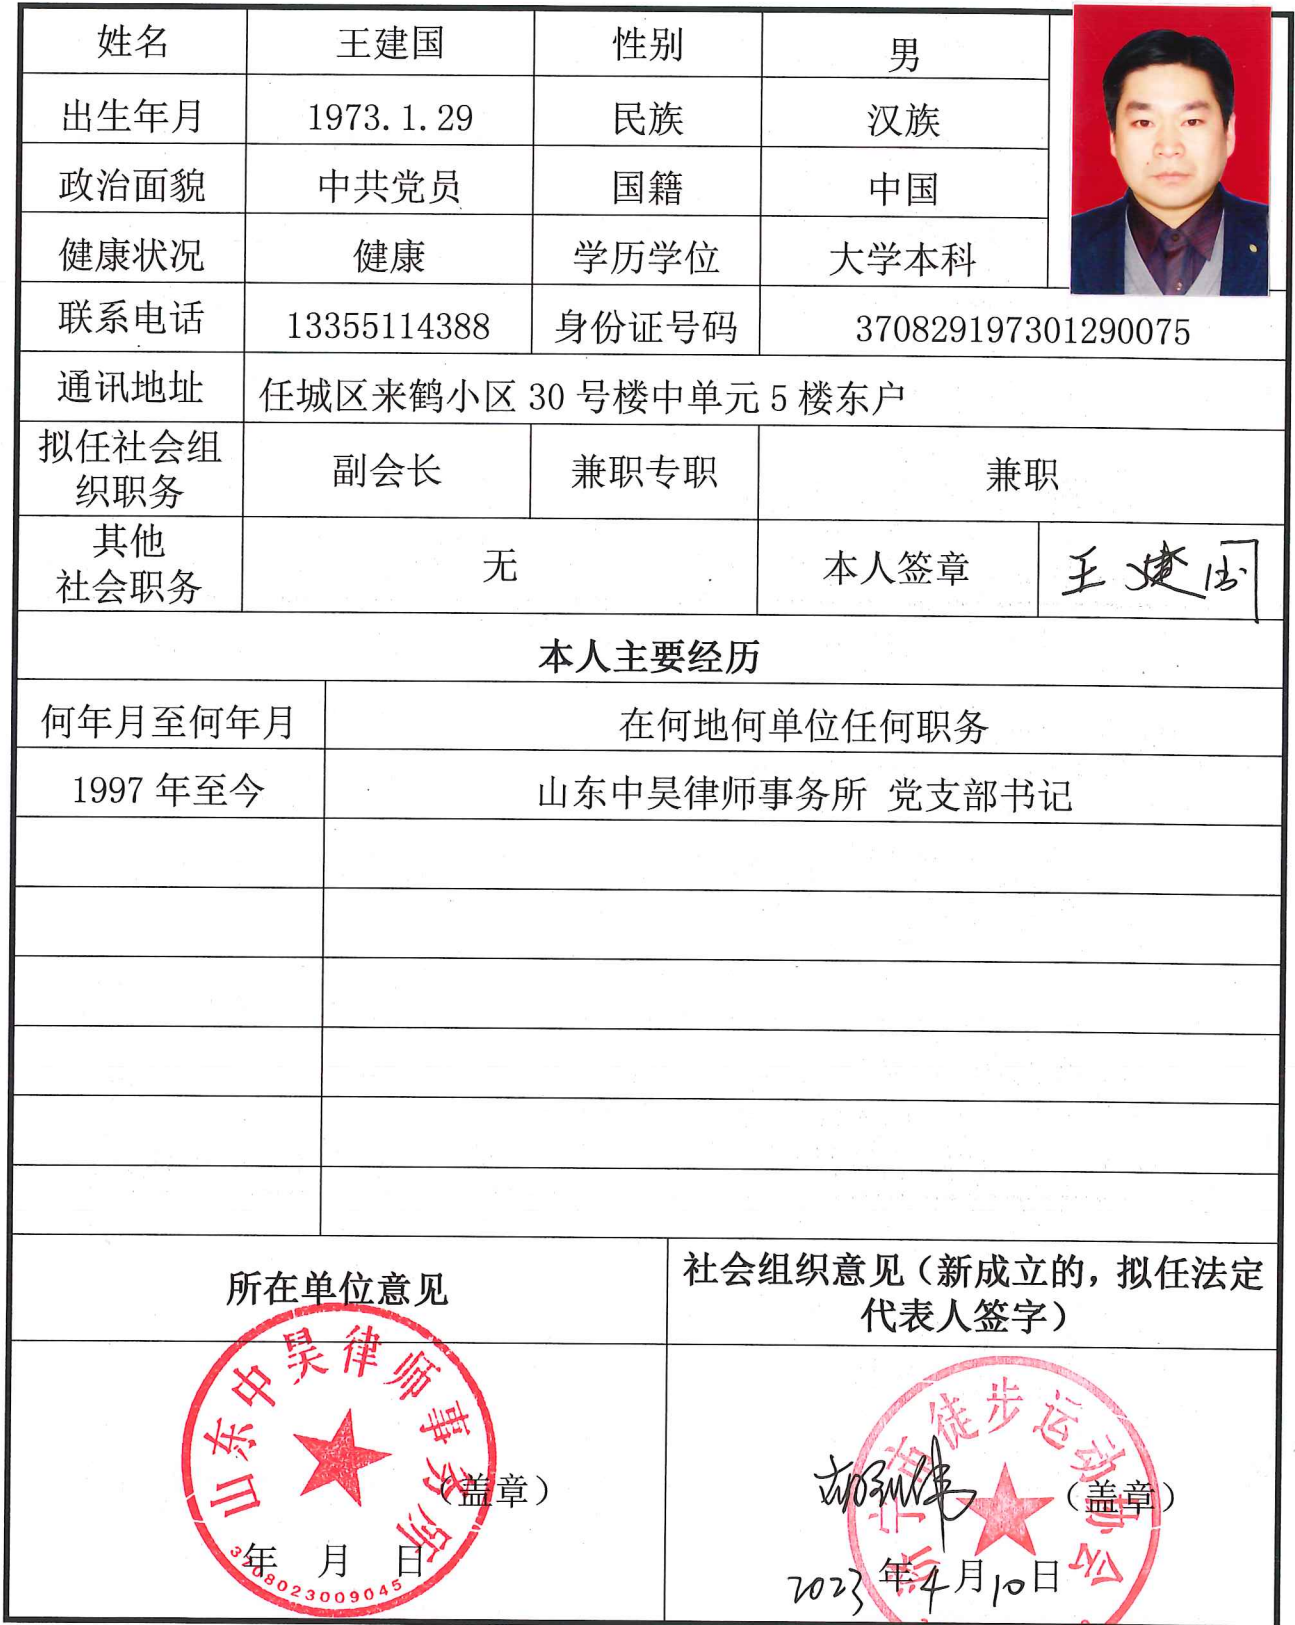 姓名 王建国 性别 男
出生年月 1973.1.29 民族 汉族
政治面貌 中共党员 国籍 中国
健康状况 健康 学历学位 大学本科
联系电话 13355114388 身份证号码 370829197301290075
通讯地址 任城区来鹤小区 30 号楼中单元 5 楼东户
拟任社会组
织职务 副会长 兼职专职 兼职
其他
社会职务 无 本人签章 王建国
本人主要经历
何年月至何年月 在何地何单位任何职务
1997 年至今 山东中昊律师事务所 党支部书记
所在单位意见
社会组织意见（新成立的，拟任法定
代表人签字）
山东中昊律师事务所
（盖章）
年 月 日
3708023009045
济宁市徒步运动协会
（盖章）
2023 年 4 月 10 日